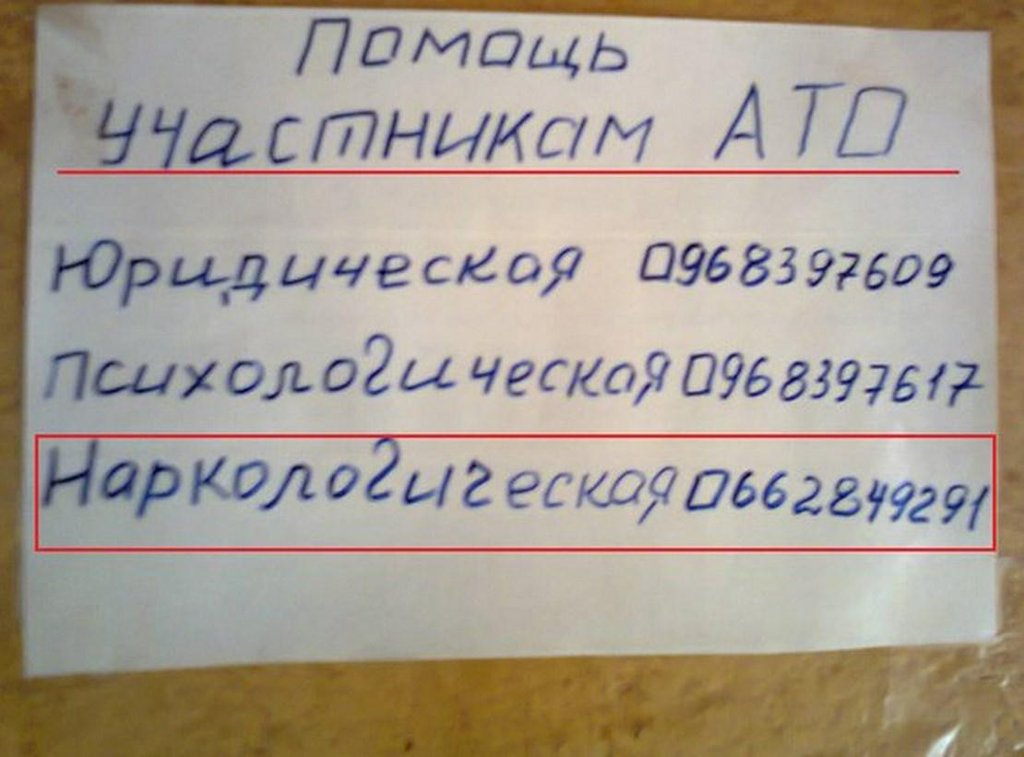 Помощь
участникам АТО
Юридическая 0968397609
Психологическая 0968397617
Наркологическая 0662849291